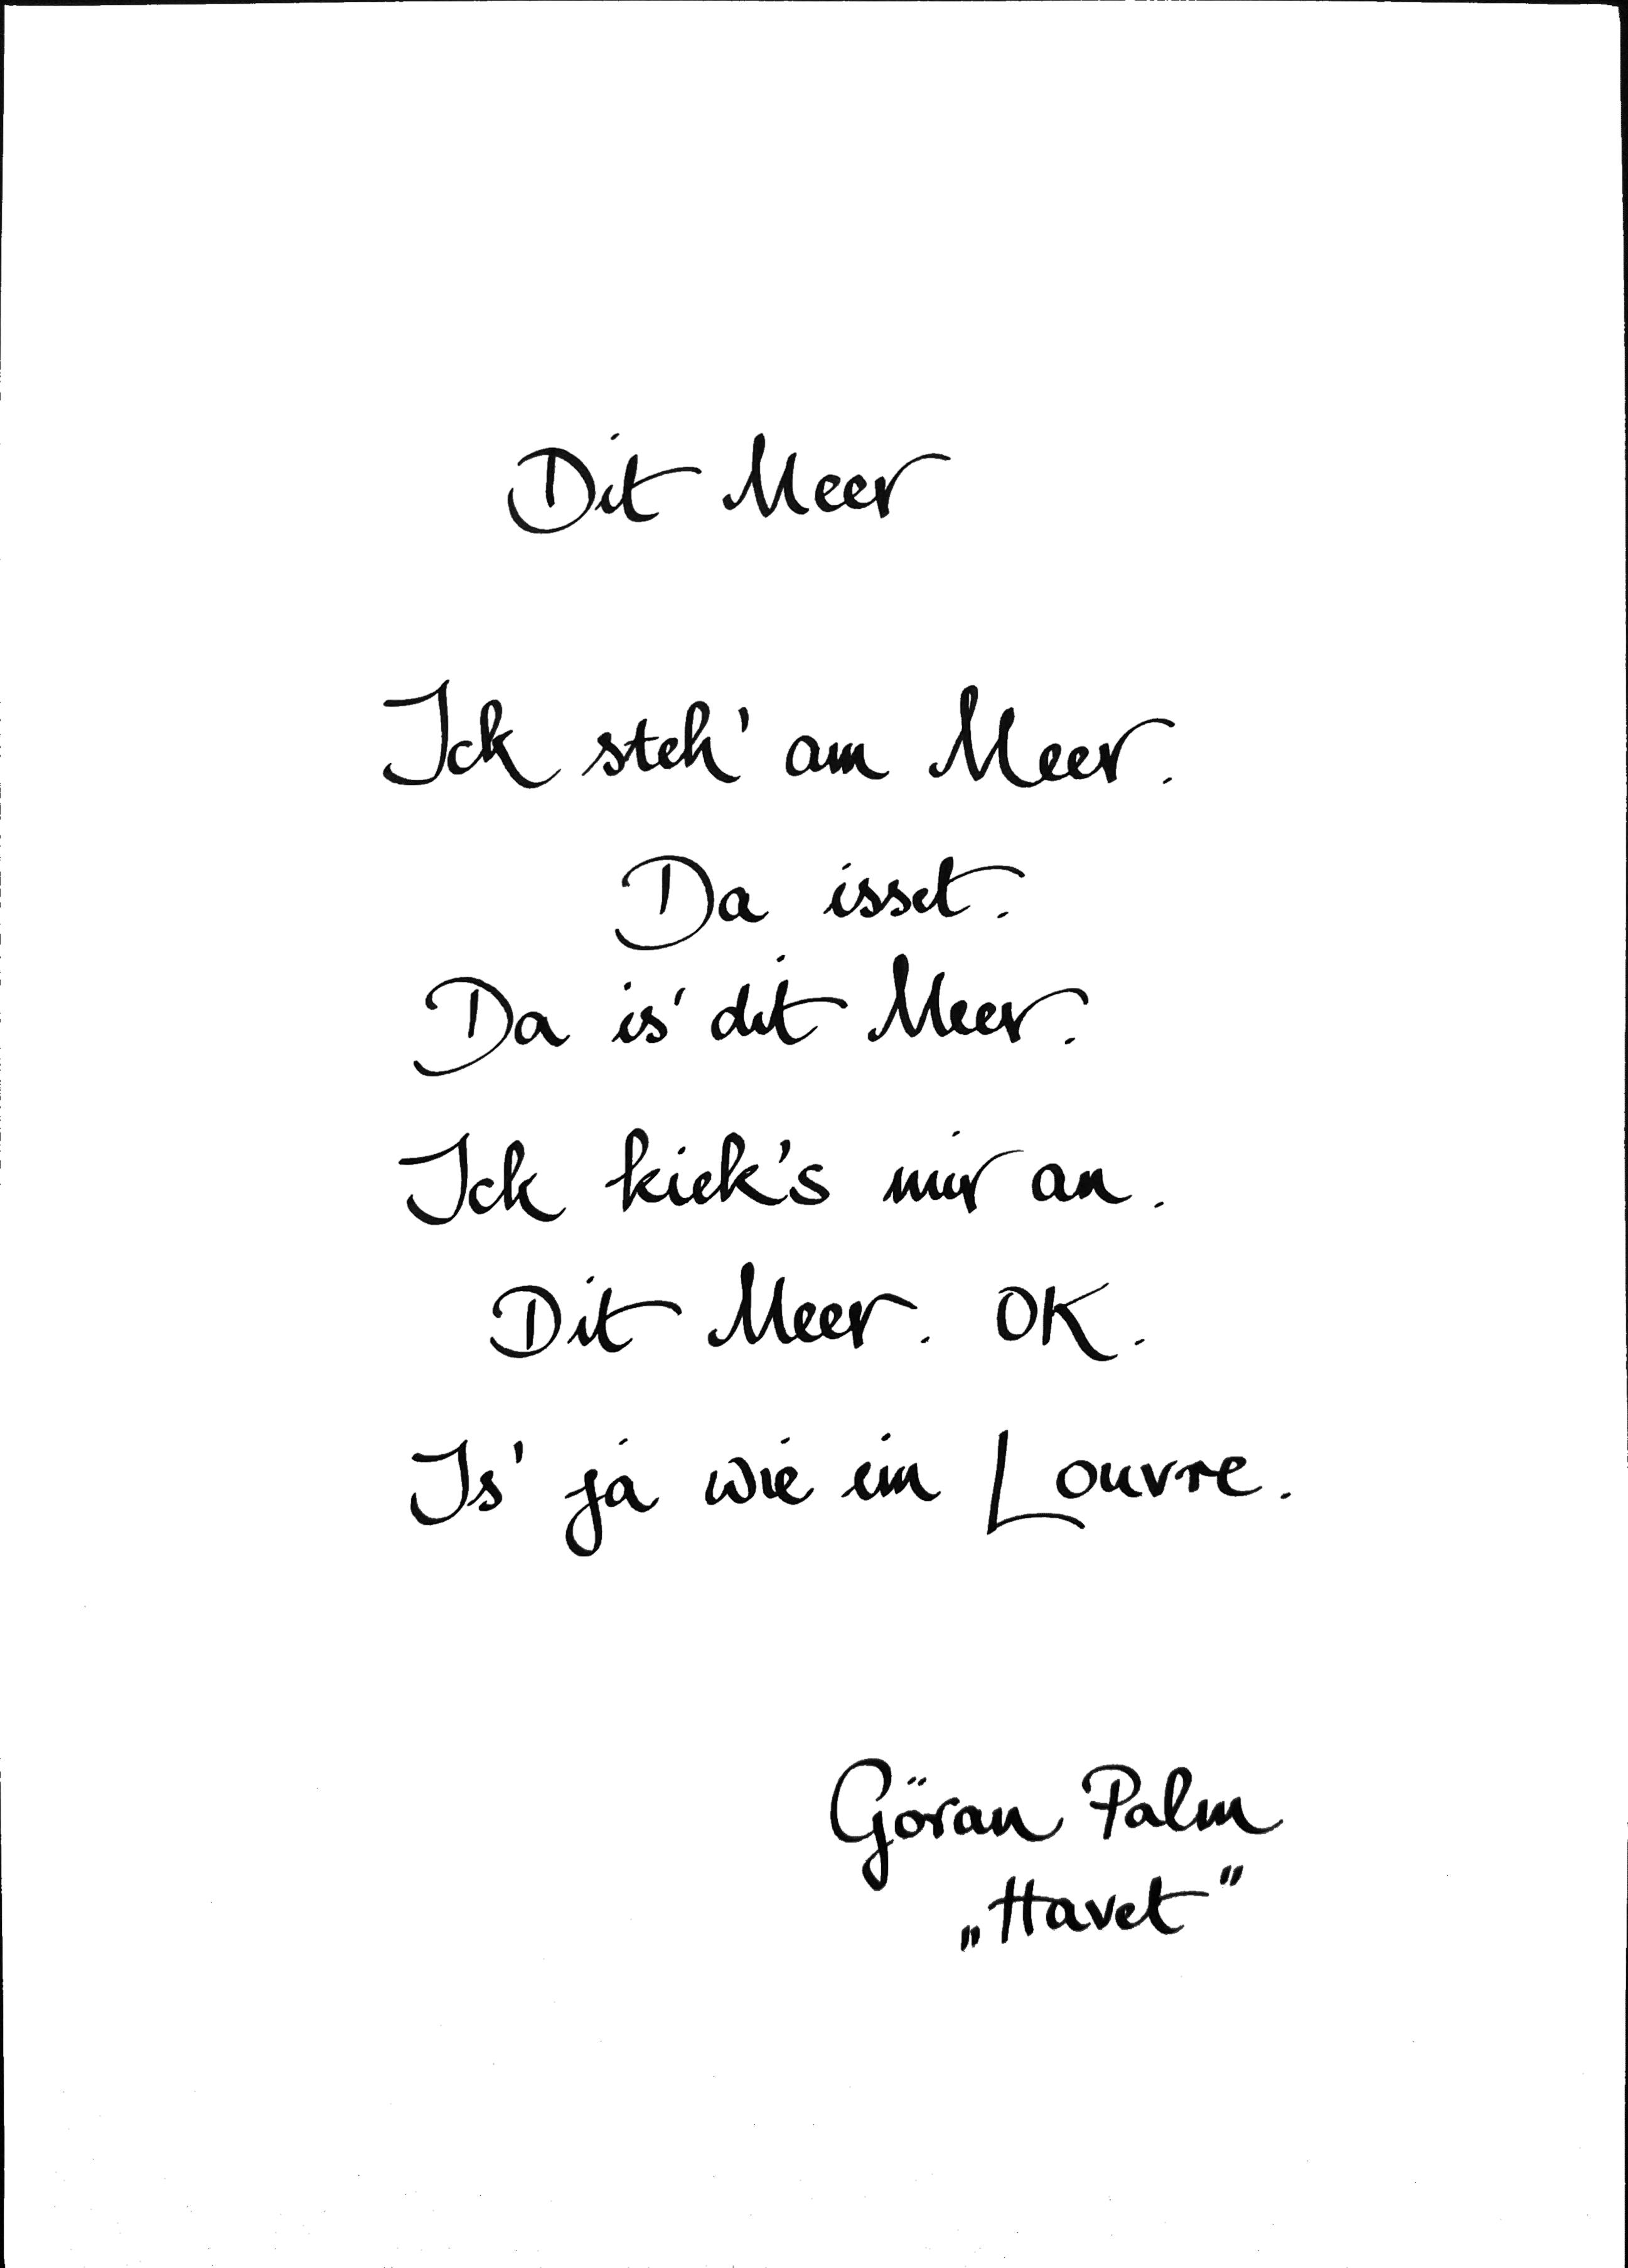 Dit Meer
Ick steh' am Meer.
Da isset.
Da is' dit Meer.
Ick kiek's mir an.
Dit Meer. OK.
Is' ja wie ein Louvre.
Göran Palm
„Havet"